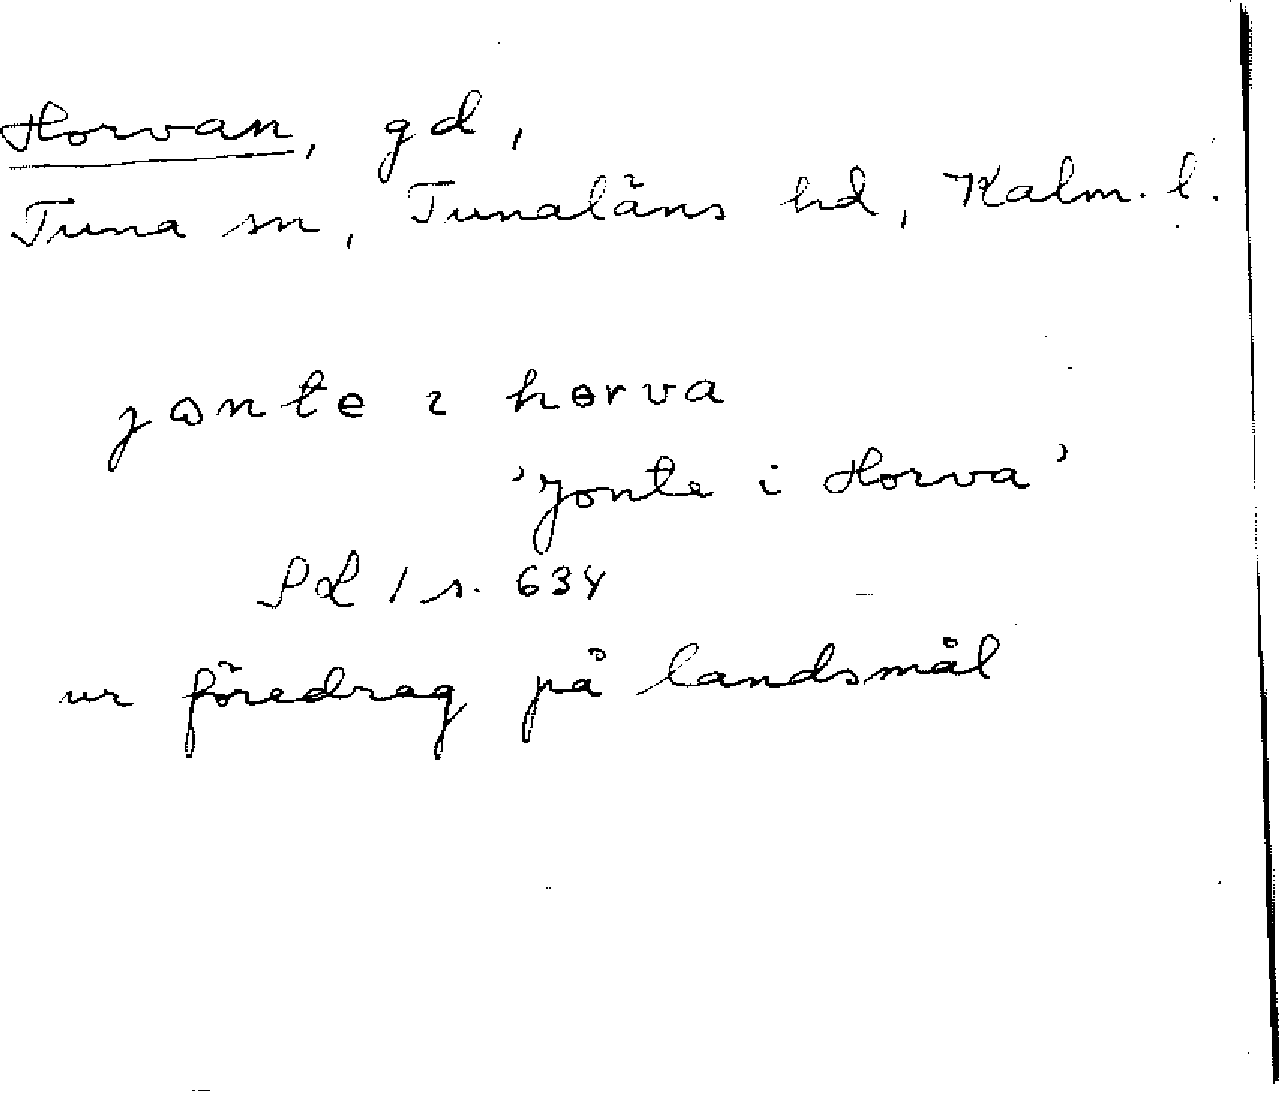 Horvan, gd,
Tuna sn, Tunaläns hd, Kalm. l.
jɷnte ɩ hɵrva
'Jonte i Horva'
SL 1 s. 634
ur föredrag på landsmål